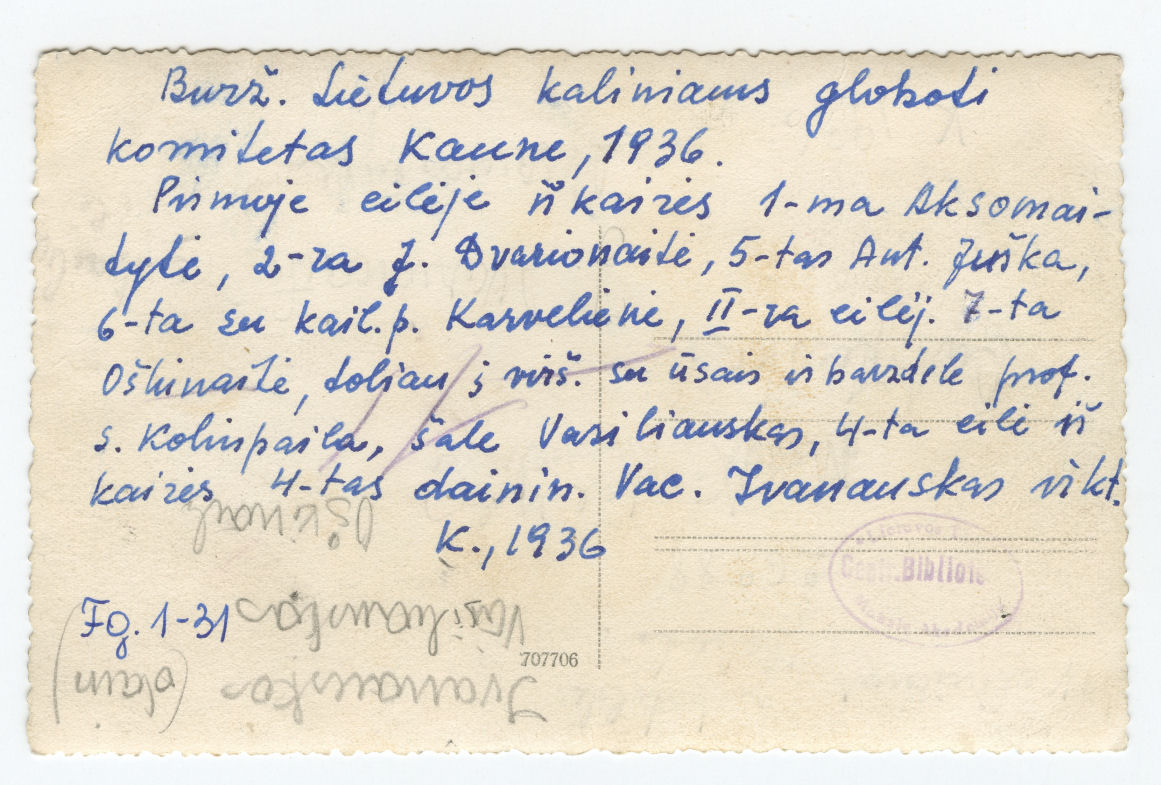 Burž. Lietuvos kaliniams globoti
komitetas Kaune, 1936.
Pirmoje eilėje iš kairės 1-ma Aksomai-
tytė, 2-ra J. Dvarionaitė, 5-tas Ant. Juška,
6-ta su kail.p. Karvelienė, II-ra eilėj. 7-ta
Oškinaitė, toliau į virš. su ūsais ir barzdele prof.
S. Kolupaila, šale Vasiliauskas, 4-ta eilė iš
kairės 4-tas dainin. Vac. Ivanauskas vikt.
K., 1936
Oškinait
Fg. 1-31
Vasiliauskas
707706
Ivanauskas (dain)
Lietuvos
Centr. Bibliote
Mokslų Akademij